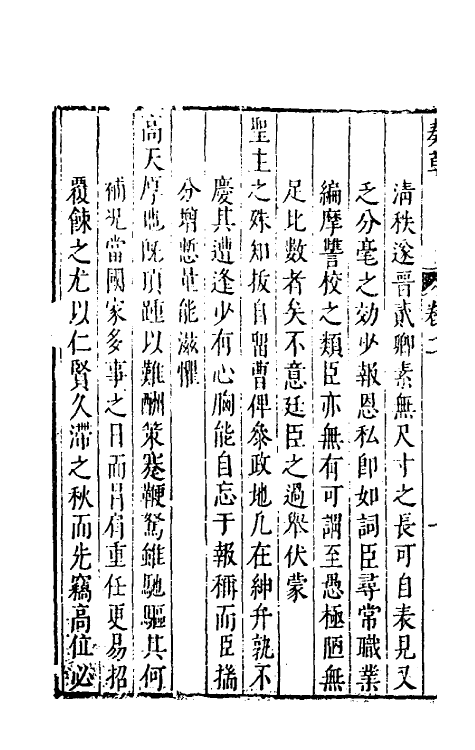 奏草
卷之一
清秩遂晉貳卿素無尺寸之長可自表見又
乏分毫之効少報恩私卽如詞臣尋常職業
編摩讐校之類臣亦無有可謂至愚極陋無
足比數者矣不意廷臣之過舉伏蒙
聖主之殊知拔自留曹俾叅政地凡在紳弁孰不
慶其遭逢少有心胸能自忘于報稱而臣揣
分增慙量能滋懼
高天厚地旣頂踵以難酬策蹇鞭駑雖馳驅其何
補况當國家多事之日而冐肩重任更易招
覆餗之尤以仁賢久滯之秋而先竊高位必